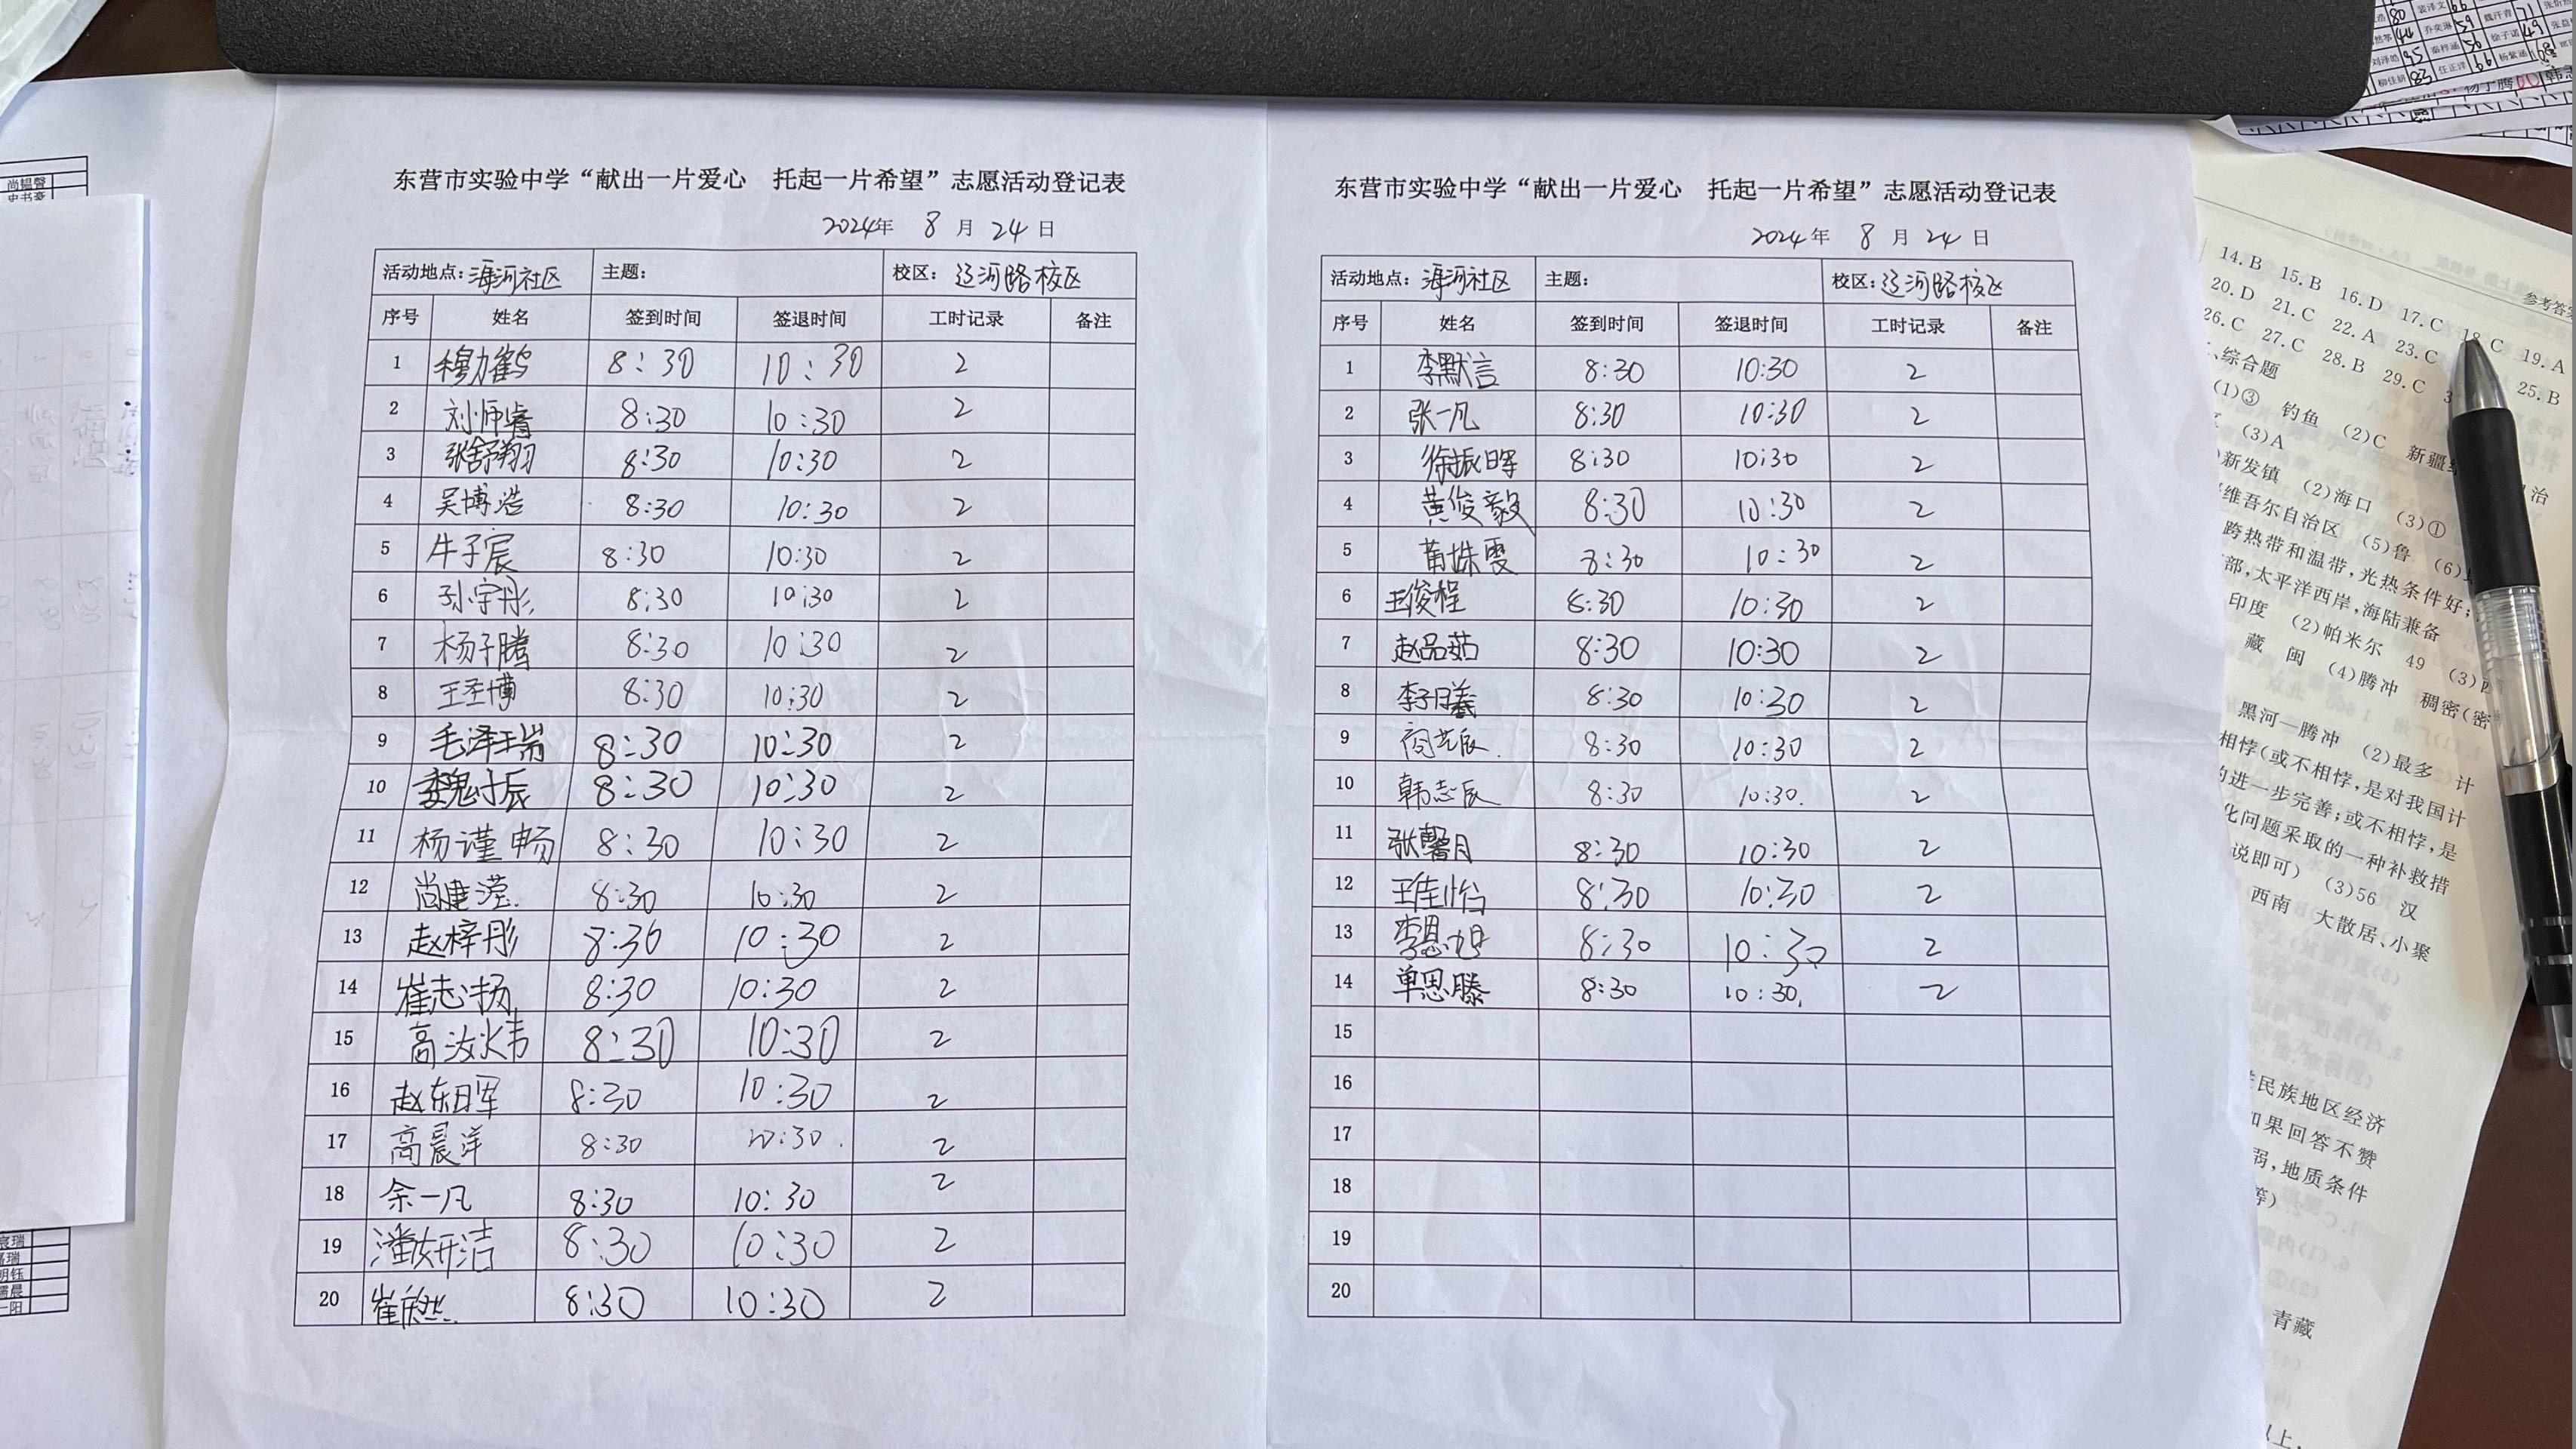 东营市实验中学“献出一片爱心 托起一片希望”志愿活动登记表
2024年 8 月 24 日
活动地点：海河社区 主题： 校区：辽河路校区
序号 姓名 签到时间 签退时间 工时记录 备注
1 8:30 10:30 2
2 刘师睿 8:30 10:30 2
3 张舒翔 8:30 10:30 2
4 吴博浩 8:30 10:30 2
5 牛子宸 8:30 10:30 2
6 孙宇彤 8:30 10:30 2
7 杨子腾 8:30 10:30 2
8 王圣博 8:30 10:30 2
9 毛泽瑞 8:30 10:30 2
10 魏时辰 8:30 10:30 2
11 杨谨畅 8:30 10:30 2
12 尚建滢 8:30 10:30 2
13 赵梓彤 8:30 10:30 2
14 崔志扬 8:30 10:30 2
15 高汝炜 8:30 10:30 2
16 赵东晖 8:30 10:30 2
17 高晨洋 8:30 10:30 2
18 余一凡 8:30 10:30 2
19 潘妍洁 8:30 10:30 2
20 崔欣然 8:30 10:30 2
东营市实验中学“献出一片爱心 托起一片希望”志愿活动登记表
2024年 8 月 24 日
活动地点：海河社区 主题： 校区：辽河路校区
序号 姓名 签到时间 签退时间 工时记录 备注
1 李默言 8:30 10:30 2
2 张一凡 8:30 10:30 2
3 徐振晖 8:30 10:30 2
4 黄俊毅 8:30 10:30 2
5 苗姝雯 8:30 10:30 2
6 王俊程 8:30 10:30 2
7 赵品茹 8:30 10:30 2
8 李子曦 8:30 10:30 2
9 8:30 10:30 2
10 韩志辰 8:30 10:30 2
11 张馨月 8:30 10:30 2
12 王佳怡 8:30 10:30 2
13 李思旭 8:30 10:30 2
14 单思滕 8:30 10:30 2
15
16
17
18
19
20
尚韫馨
史书豪
参考答案
14.B 15.B 16.D 17.C 18.C 19.A
20.D 21.C 22.A 23.C 25.B
26.C 27.C 28.B 29.C
、综合题
(1)③ 钓鱼 (2)C 新疆
(3)A
新发镇 (2)海口 (3)①
维吾尔自治区 (5)鲁 (6)
跨热带和温带,光热条件好;
部,太平洋西岸,海陆兼备
印度 (2)帕米尔 49 (3)
藏 闽 (4)腾冲 稠密(密
黑河—腾冲 (2)最多 计
相悖(或不相悖,是对我国计
的进一步完善;或不相悖,是
化问题采取的一种补救措
说即可) (3)56 汉
西南 大散居、小聚
民族地区经济
如果回答不赞
弱,地质条件
等)
青藏